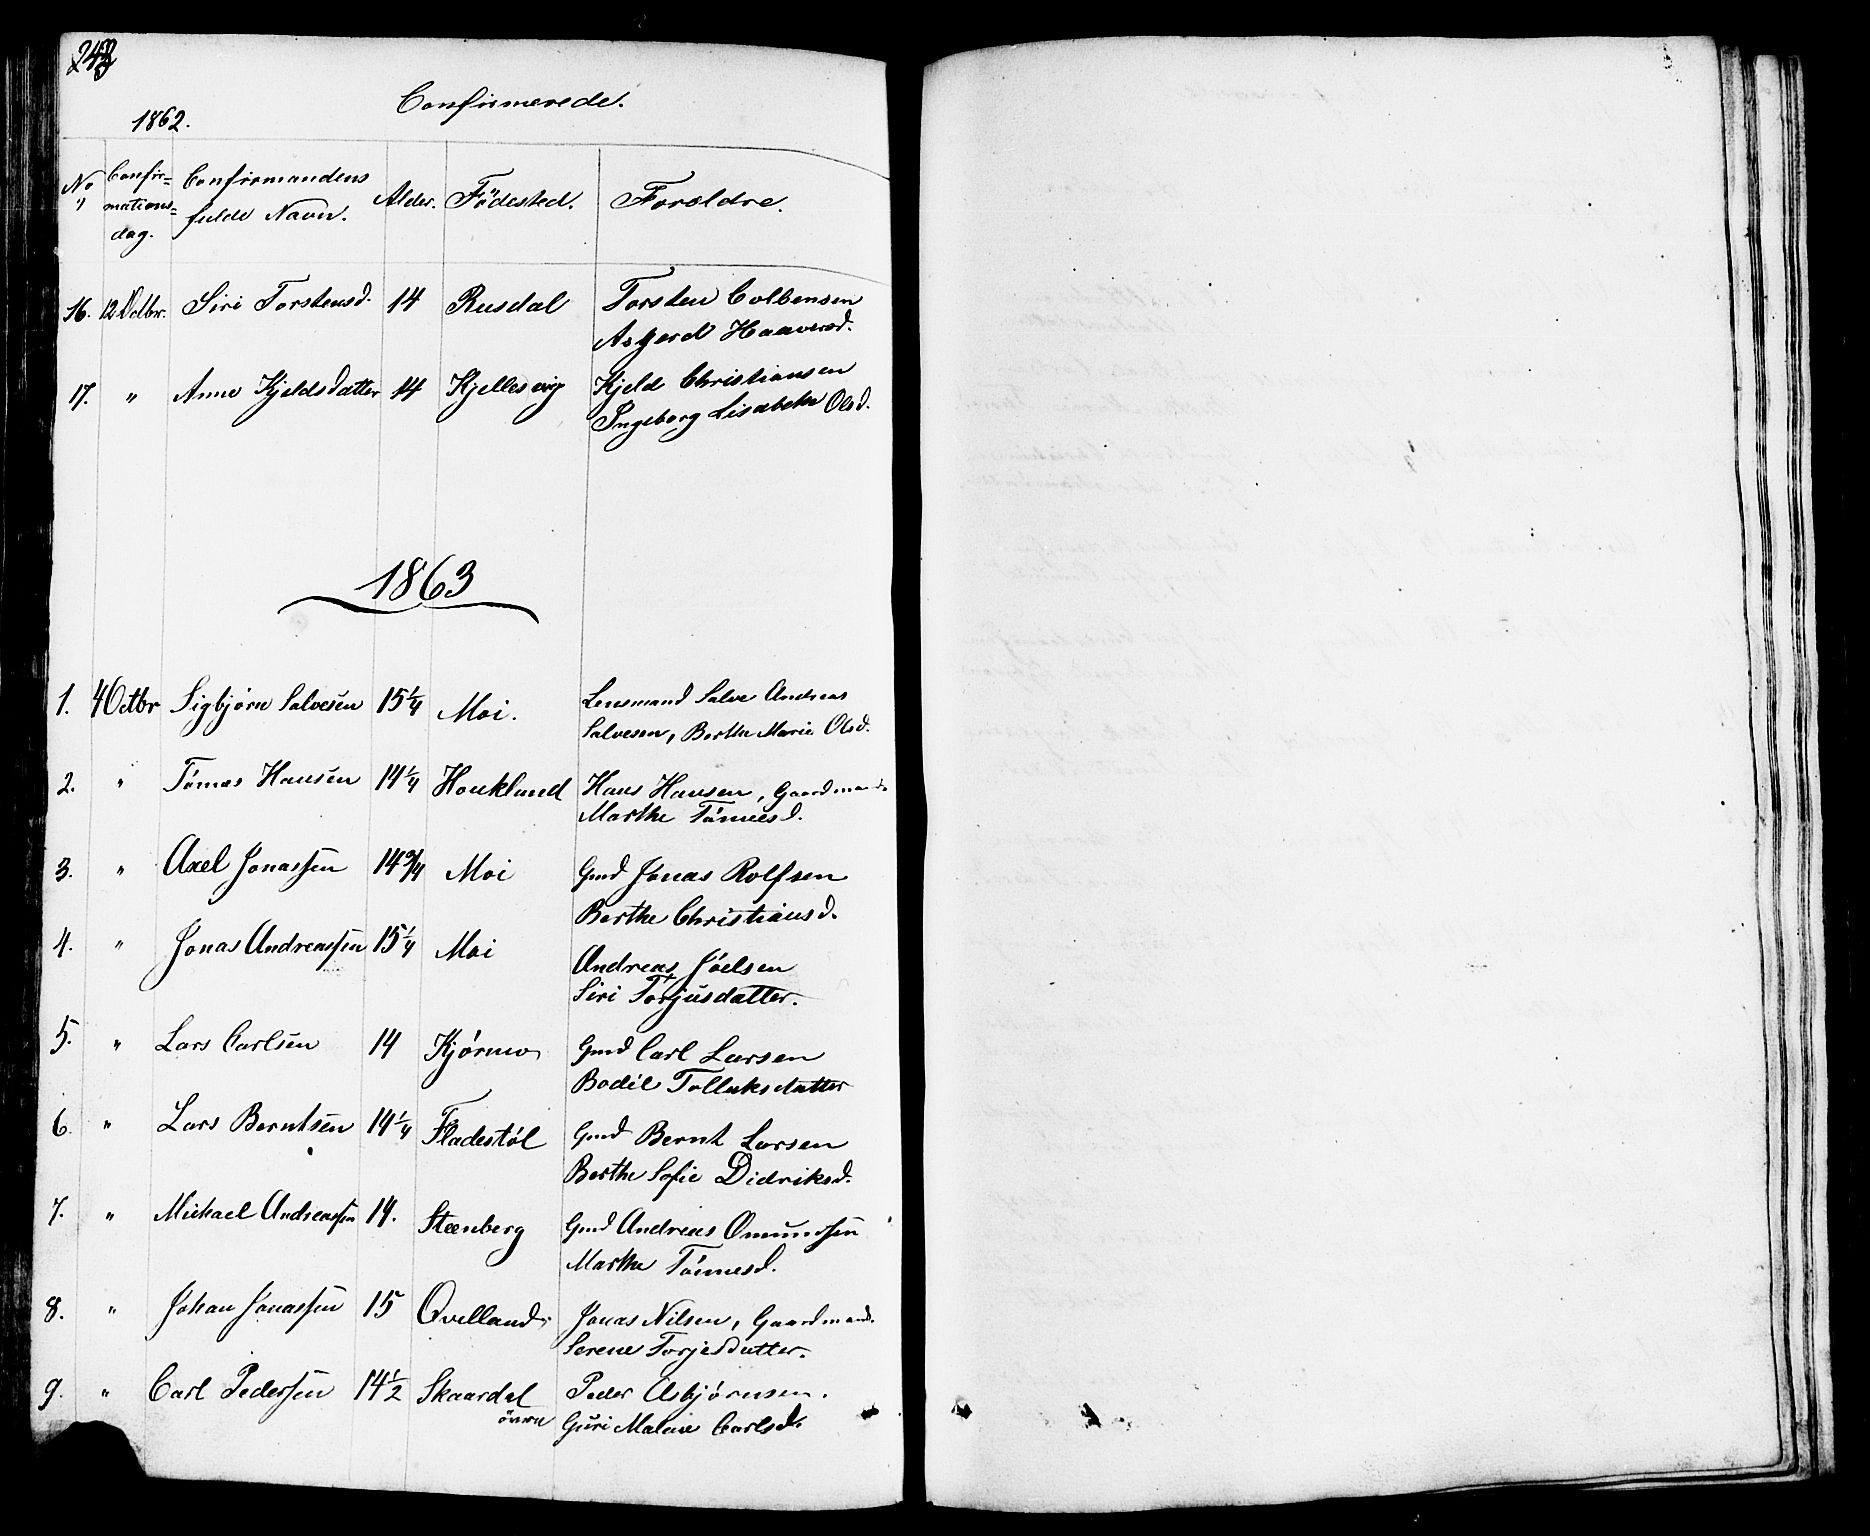 Confirmerede.
1862.
No Confir= mations= dag. Confirmandens fulde Navn. Alder. Födested. Forældre.
16. 12 Octbr. Siri Torstensd. 14 Rusdal Torsten Colbensen
Asgerd Haaversd.
17. " Anne Kjeldsdatter 14 Kjellesvig Kjeld Christiansen
Ingeborg Lisabeth Olsd.
1863
1. 4 Octbr Sigbjørn Salvesen 15 1/4 Moi. Lensmand Salve Andreas
Salvesen, Berthe Marie Olsd.
2. " Tönnes Hansen 14 1/4 Houkland Hans Hansen, Gaardmand.
Marthe Tönnesd.
3. " Axel Jonassen 14 3/4 Moi Gmd Jonas Rolfsen
Berthe Christiansd.
4. " Jonas Andreassen 15 1/4 Moi Andreas Joelsen
Siri Torjusdatter.
5. " Lars Carlsen 14 Kjørmo Gmd Carl Larsen
Bodil Tollaksdatter
6. " Lars Berntsen 14 1/4 Fladestøl Gmd Bernt Larsen
Berthe Sofie Didriksd.
7. " Michael Andreassen 14. Steenberg Gmd Andreas Omundsen
Marthe Tönnesd.
8. " Johan Jonassen 15 Qvelland Jonas Nilsen, Gaardmand.
Serene Torjesdatter.
9. " Carl Pedersen 14 1/2 Skaardal övre Peder Asbjørnsen.
Guri Malene Carlsd.